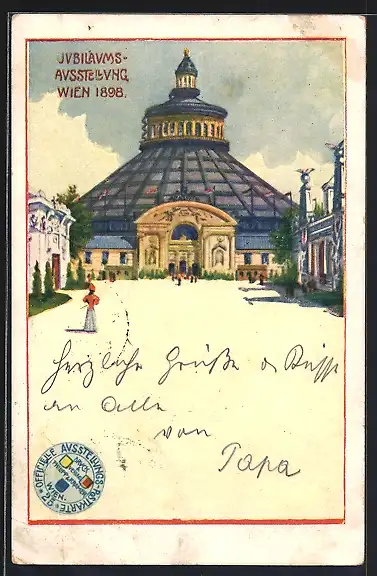 JUBILÄUMS-
AUSSTELLUNG
WIEN 1898.
Herzliche Grüße u Küsse
an Alle
von
Papa
OFFICIELLE AUSSTELLUNGS-POSTKARTE
WIEN.